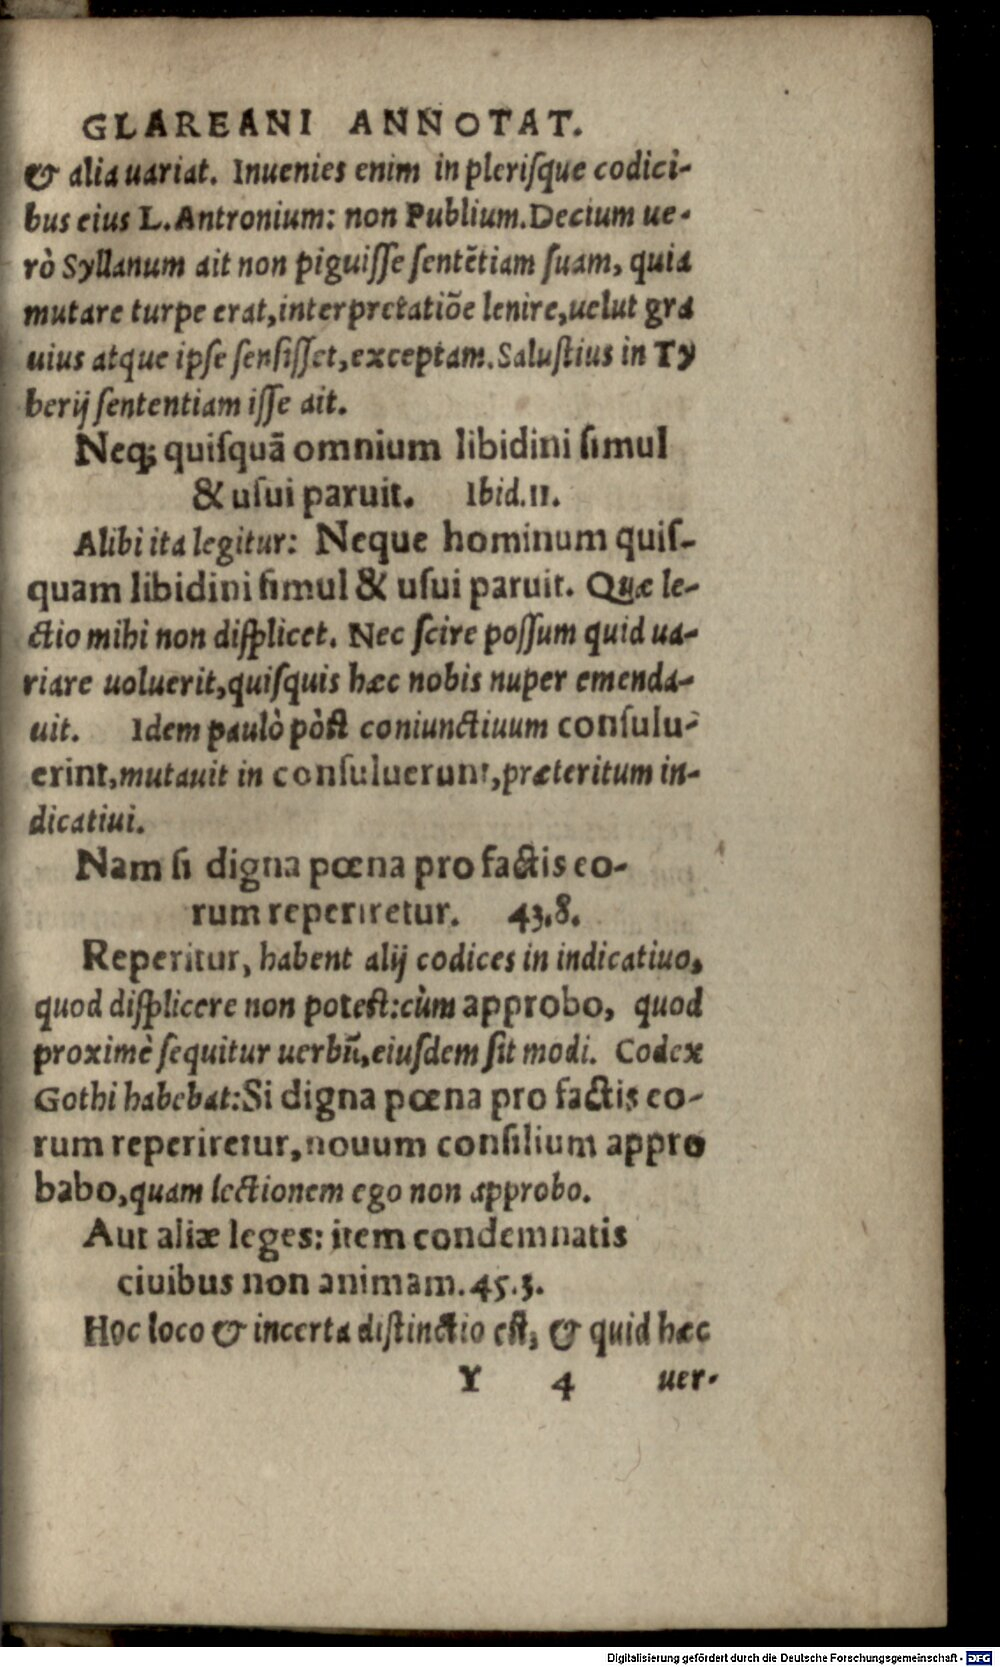 GLAREANI ANNOTAT.
& alia uariat. Inuenies enim in pleriſque codici-
bus eius L. Antronium: non Publium. Decium ue-
rò Syllanum ait non piguiſſe ſentẽtiam ſuam, quia
mutare turpe erat, interpretatiõe lenire, uelut gra
uius atque ipſe ſenſiſſet, exceptam. Saluſtius in Ty
berij ſententiam iſſe ait.
Neq; quiſquã omnium libidini ſimul
& uſui paruit. Ibid. 11.
Alibi ita legitur: Neque hominum quiſ-
quam libidini ſimul & uſui paruit. Quæ le-
ctio mihi non diſplicet. Nec ſcire poſſum quid ua-
riare uoluerit, quiſquis hæc nobis nuper emenda-
uit. Idem paulò pòſt coniunctiuum conſulu-
erint, mutauit in conſuluerunt, præteritum in-
dicatiui.
Nam ſi digna pœna pro factis eo-
rum reperiretur. 43.8.
Reperitur, habent alij codices in indicatiuo,
quod diſplicere non poteſt: cùm approbo, quod
proximè ſequitur uerbũ, eiuſdem ſit modi. Codex
Gothi habebat: Si digna pœna pro factis eo-
rum reperiretur, nouum conſilium appro
babo, quam lectionem ego non approbo.
Aut aliæ leges: item condemnatis
ciuibus non animam. 45.3.
Hoc loco & incerta diſtinctio eſt, & quid hæc
Y 4 uer-
Digitalisierung gefördert durch die Deutsche Forschungsgemeinschaft - DFG